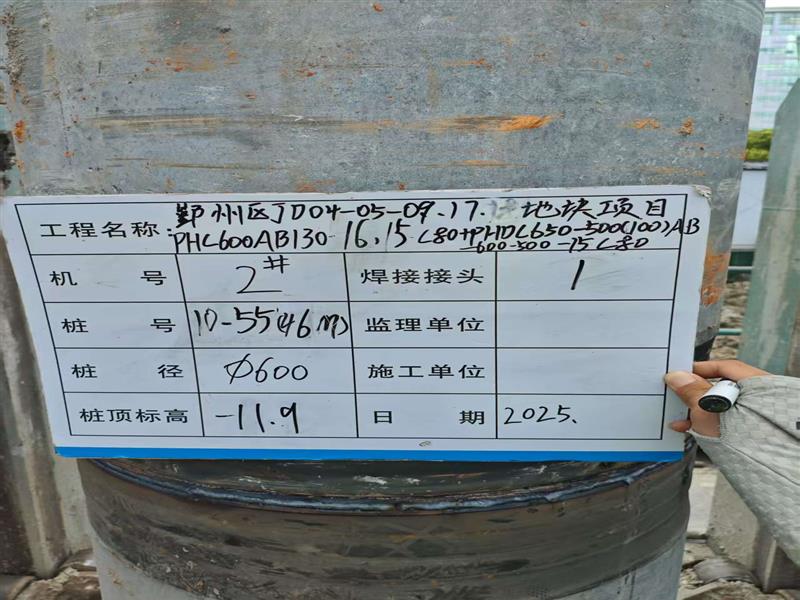 鄞州区JD04-05-09.17. 地块项目
工程名称:PHC600AB130-16.15 C80+PHDC650-500(100)AB
-600-500-15C80
机 号 2# 焊接接头 1
桩 号 10-55(46m) 监理单位
桩 径 Φ600 施工单位
桩顶标高 -11.9 日 期 2025.